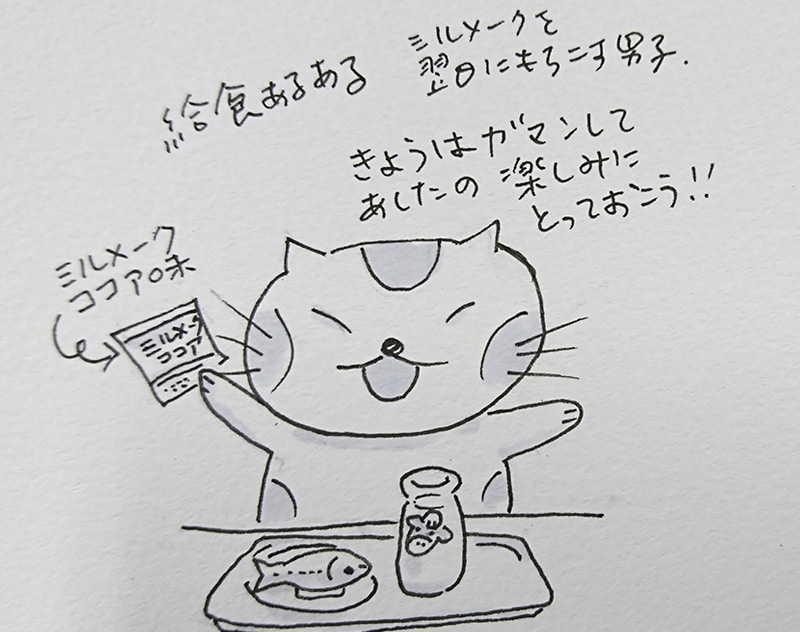 給食あるある
ミルメークを
翌日にもちこす男子.
きょうはガマンして
あしたの楽しみに
とっておこう!!
ミルメーク
ココア味
ミルメーク
ココア